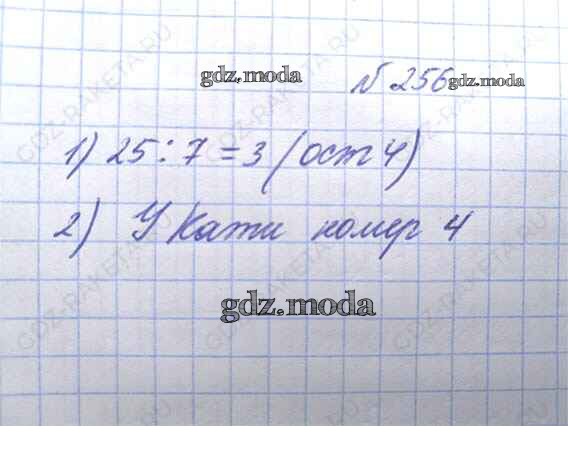 gdz.moda
№ 256 gdz.moda
1) 25 : 7 = 3 (ост 4)
2) У Кати номер 4
gdz.moda
GDZ-RAKETA.RU